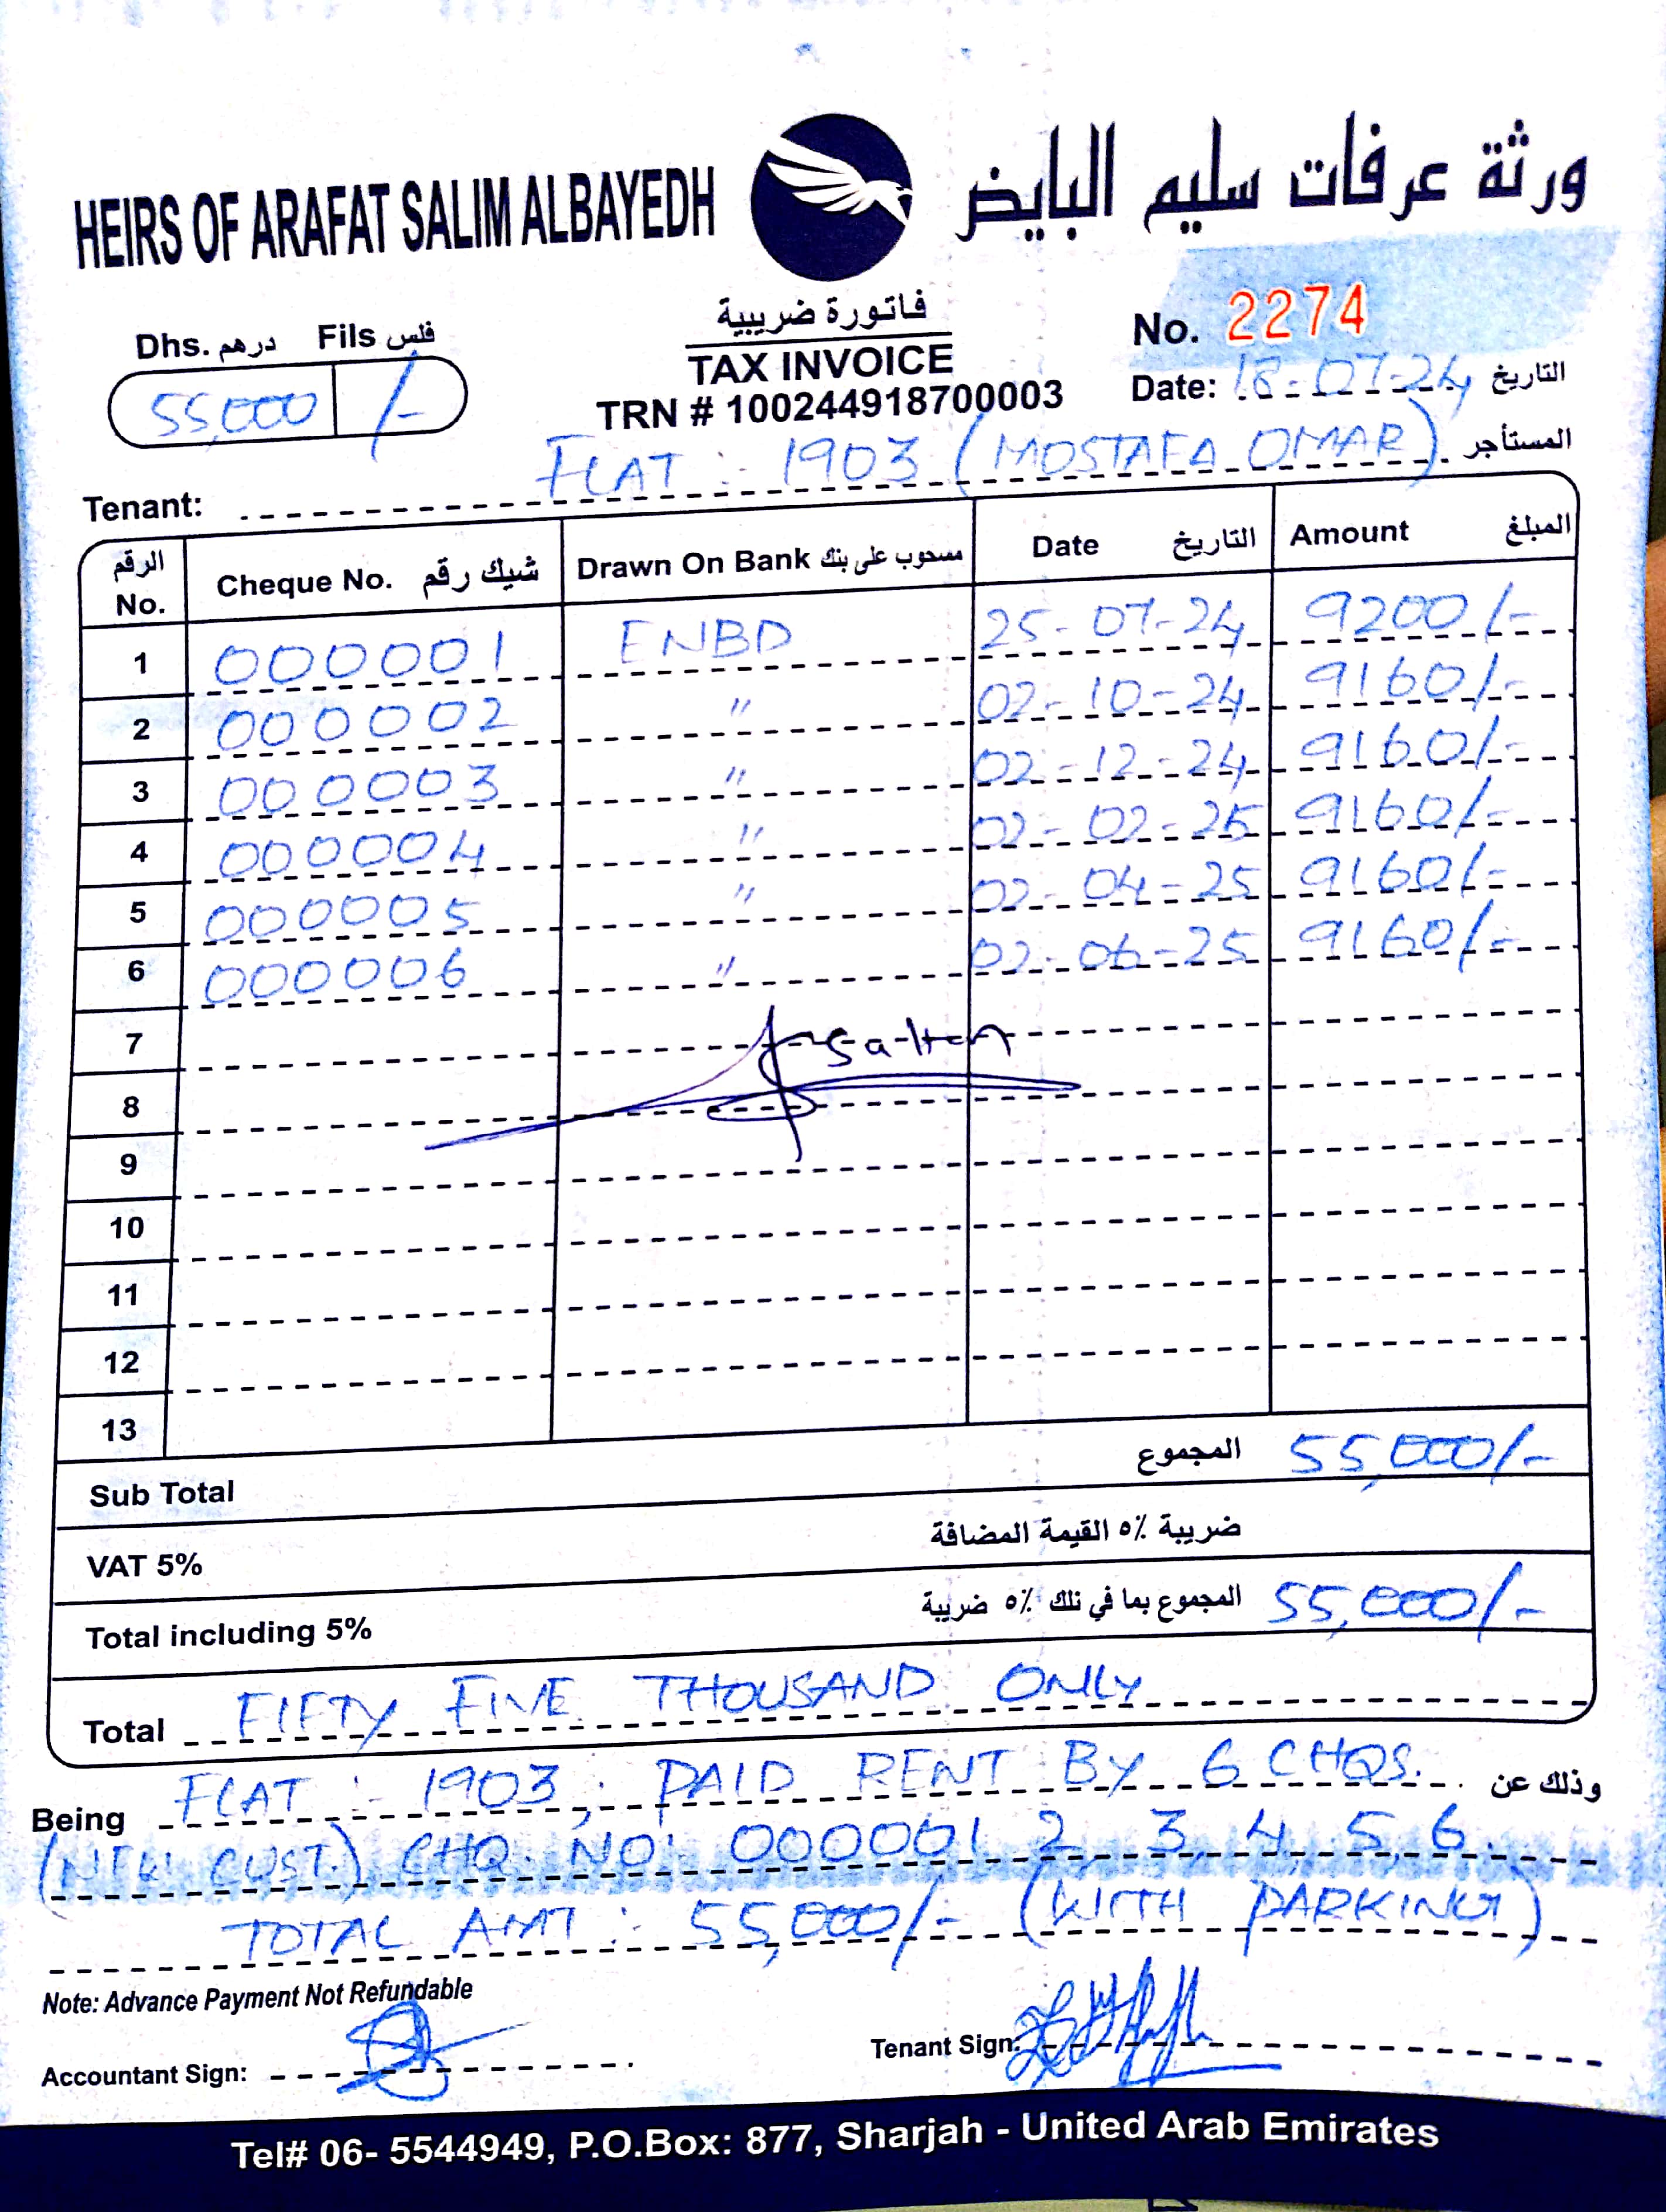 HEIRS OF ARAFAT SALIM ALBAYEDH ورثة عرفات سليم البايض
فاتورة ضريبية
TAX INVOICE
TRN # 100244918700003
Dhs. درهم Fils فلس
55,000 /-
No. 2274
Date: 18-07-24 التاريخ
Tenant: FLAT : 1903 (MOSTAFA OMAR) المستأجر
الرقم No. Cheque No. شيك رقم Drawn On Bank مسحوب على بنك Date التاريخ Amount المبلغ
1 000001 ENBD 25-07-24 9200/-
2 000002 " 02-10-24 9160/-
3 000003 " 02-12-24 9160/-
4 000004 " 02-02-25 9160/-
5 000005 " 02-04-25 9160/-
6 000006 " 02-06-25 9160/-
7
8
9
10
11
12
13
Sub Total المجموع 55,000/-
VAT 5% ضريبة ٥٪ القيمة المضافة
Total including 5% المجموع بما في ذلك ٥٪ ضريبة 55,000/-
Total FIFTY FIVE THOUSAND ONLY
Being FLAT : 1903, PAID RENT BY 6 CHQS. وذلك عن
(NEW CUST.) CHQ. NO: 000001, 2, 3, 4, 5, 6.
TOTAL AMT : 55,000/- (WITH PARKING)
Note: Advance Payment Not Refundable
Accountant Sign:
Tenant Sign:
Tel# 06- 5544949, P.O.Box: 877, Sharjah - United Arab Emirates